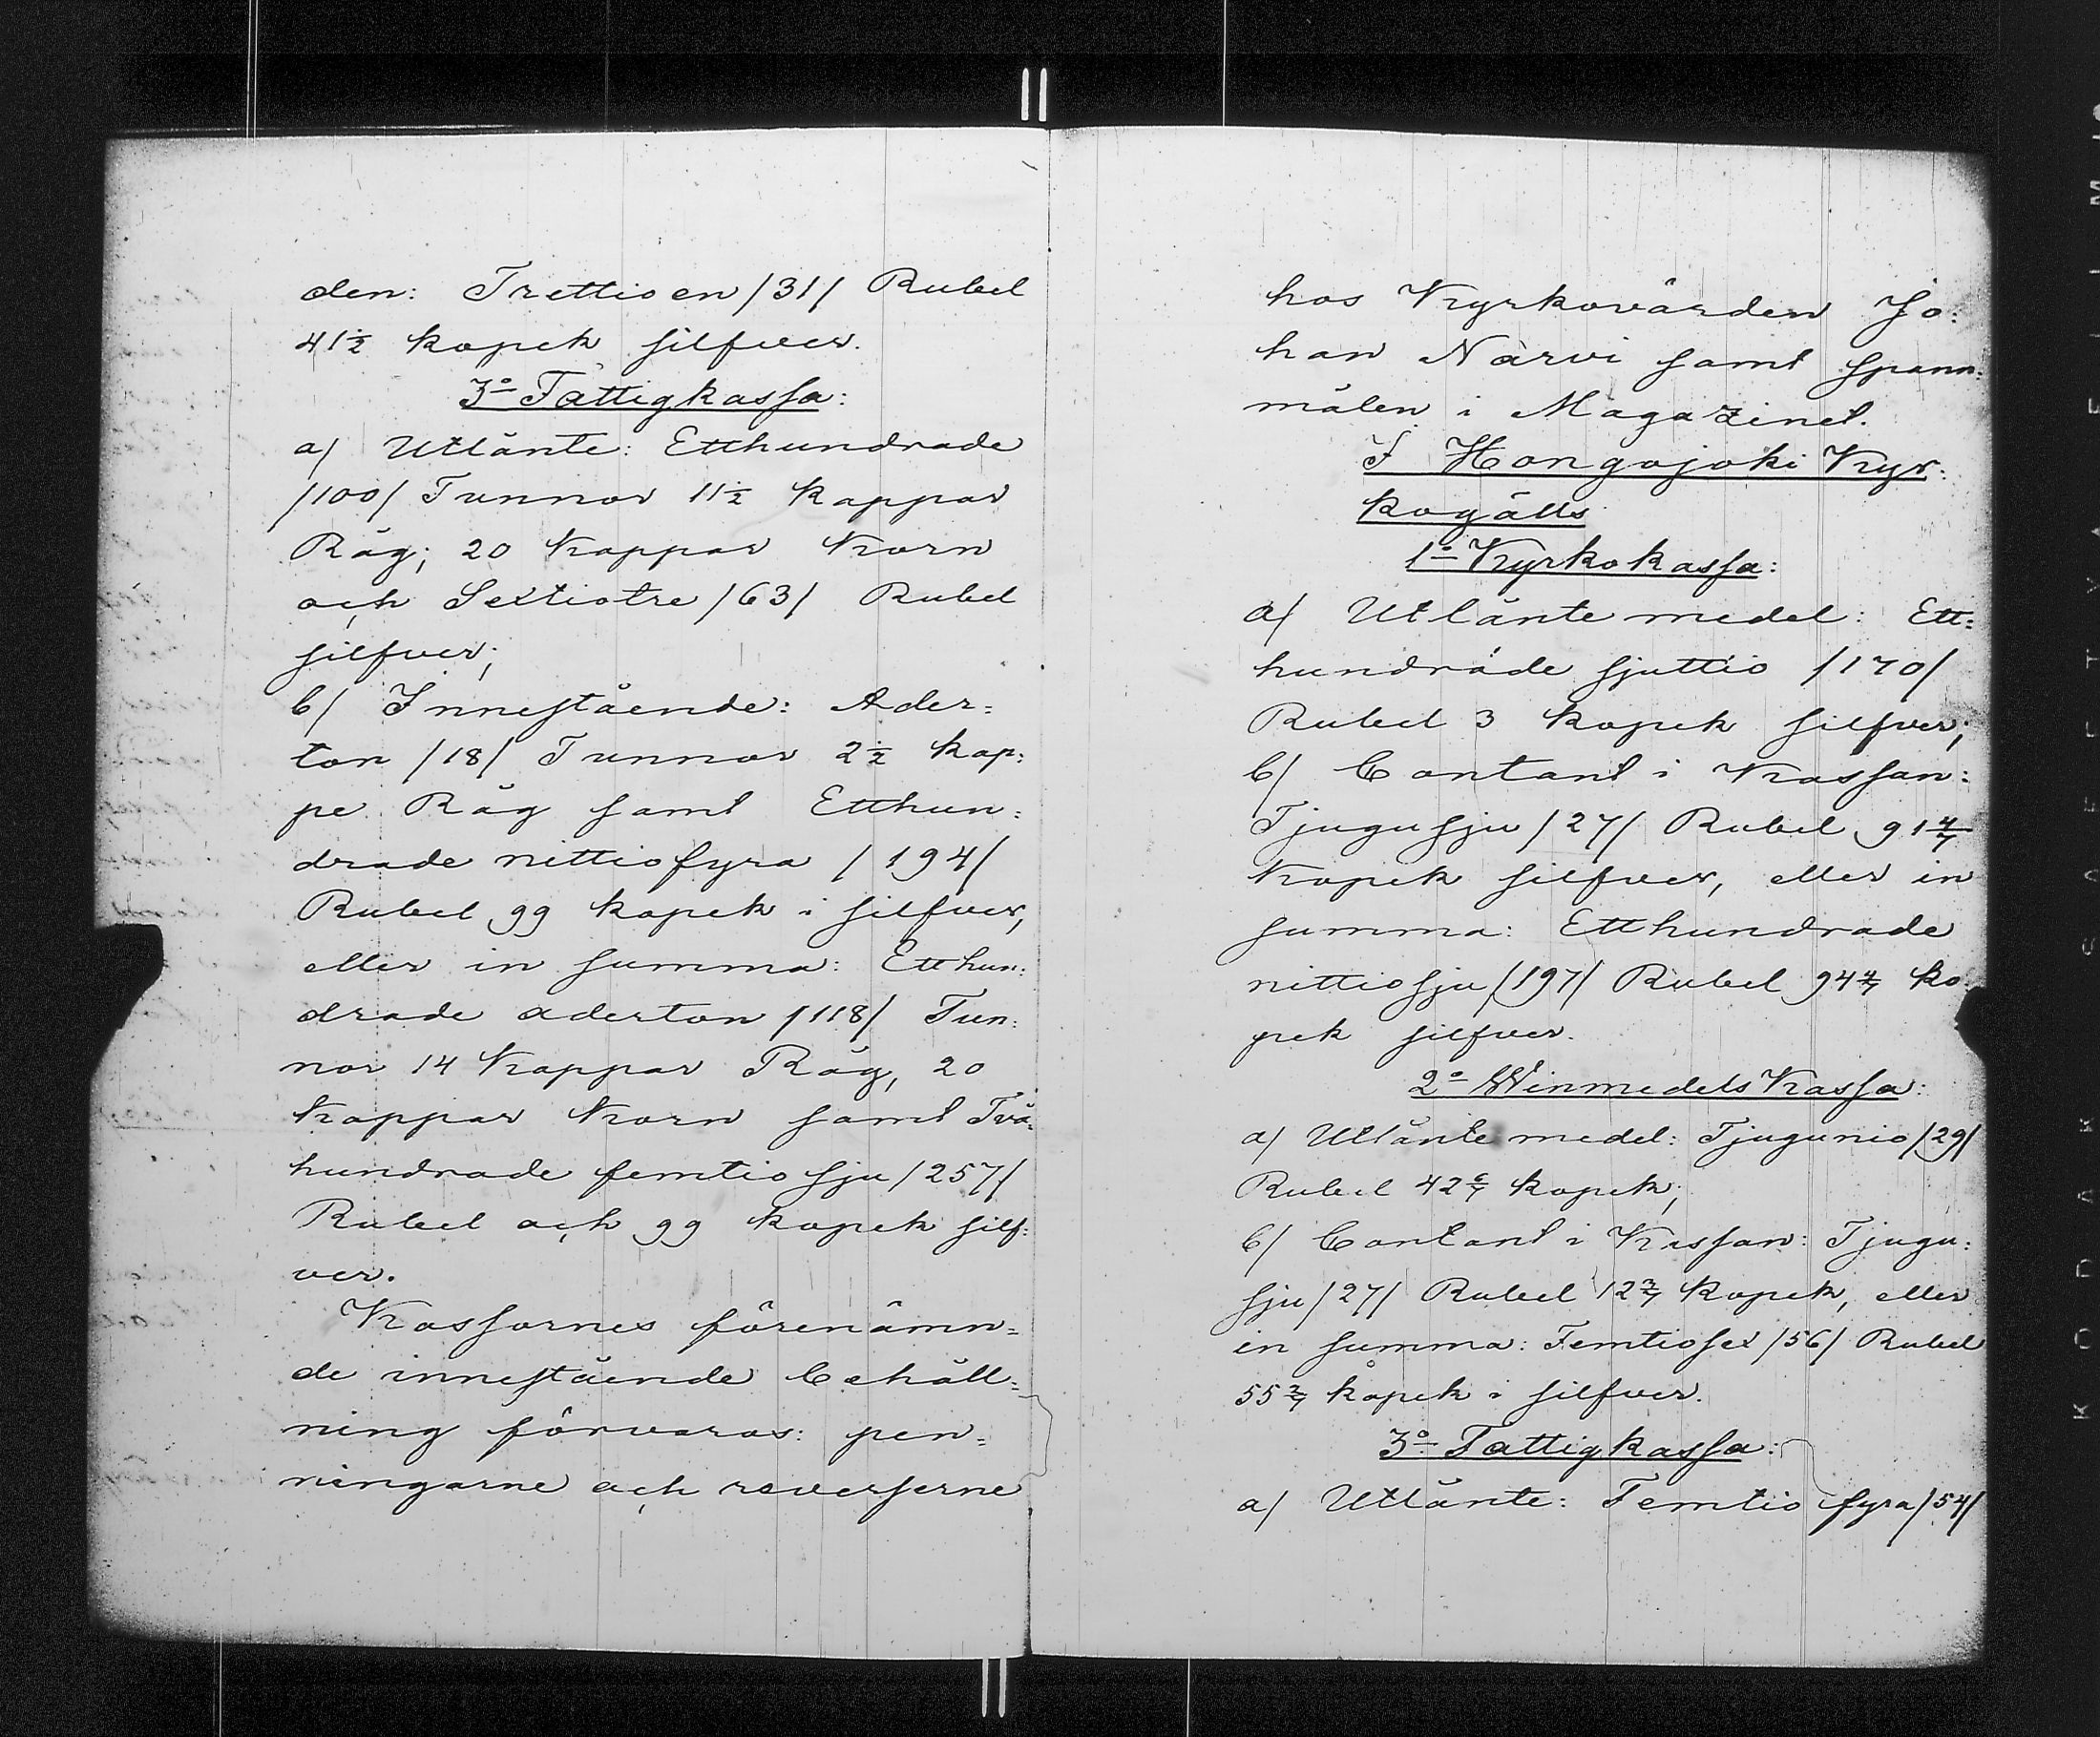 den: Trettioen /31/ Rubel
41½ kopek silfver.
3º Fattigkassa:
a/ Utlånte: Etthundrade
/100/ Tunnor 11½ kappar
Råg; 20 Kappar Korn
och Sextiotre /63/ Rubel
silfver;
b/ Innestående: Ader=
ton /18/ Tunnor 2½ kap:
pe Råg samt Etthun=
drade nittiofyra /194/
Rubel 99 kopek i silfver,
eller in summa: Etthun:
drade aderton /118/ Tun:
nor 14 Kappar Råg, 20
Kappar Korn samt Två:
hundrade femtiosju /257/
Rubel och 99 kopek silf:
ver.
Kassornes förenämn=
de innestående behåll=
ning förvaras: pen=
ningarne och reverserne
hos Kyrkovärden Jo:
han Närvi samt spann:
målen i Magazinet.
I Hongojoki Kyr:
kogälls
1º Kyrkokassa:
a/ Utlånte medel: Ett:
hundrade sjuttio /170/
Rubel 3 kopek silfver;
b/ Contant i Kassan:
Tjugusju /27/ Rubel 91 4/7
Kopek silfver, eller in
summa: Etthundrade
nittiosju /197/ Rubel 94 4/7 ko:
pek silfver.
2º WinmedelsKassa:
a/ Utlånte medel: Tjugunio /29/
Rubel 42 6/7 kopek;
b/ Contant i Kassan: Tjugu:
sju /27/ Rubel 12 3/7 kopek, eller
in summa: Femtiosex /56/ Rubel
55 2/7 kopek i silfver.
3º Fattigkassa:
a/ Utlånte: Femtiofyra /54/
KODAK SAFETY